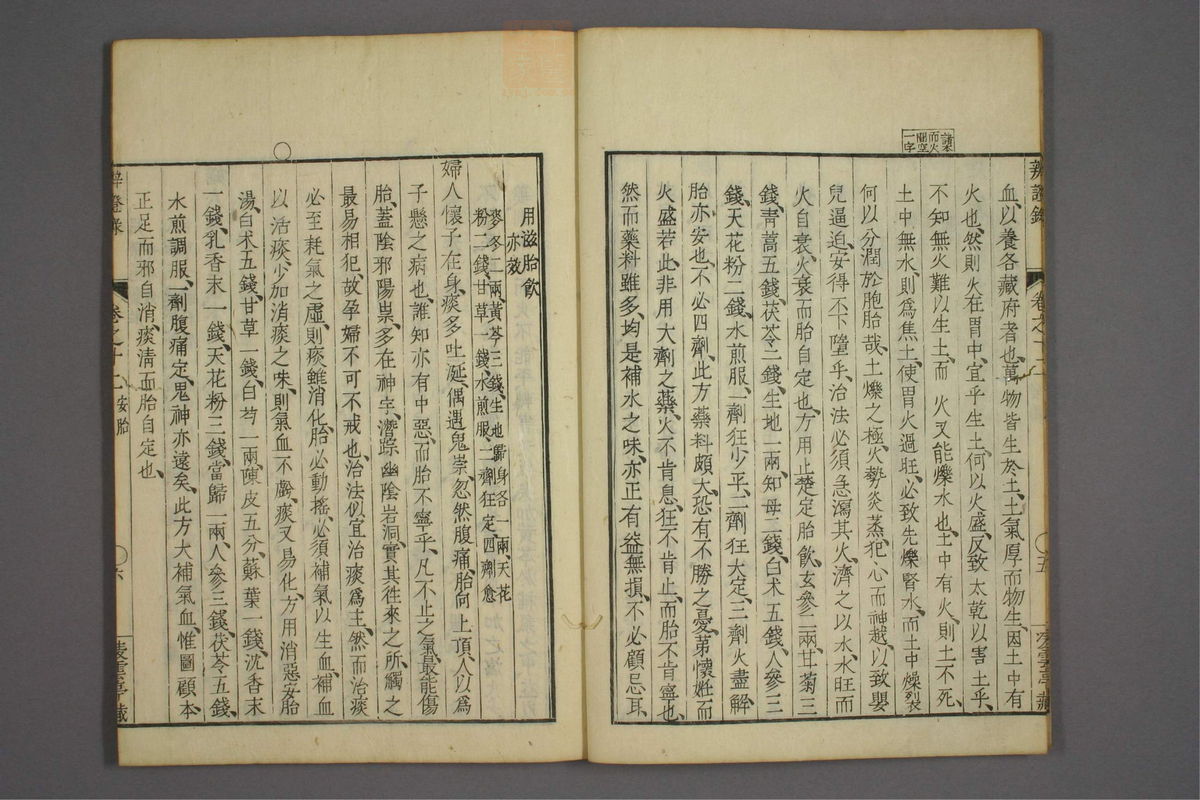 辨證錄
卷之十二
五
凌雲亭藏
諸本
而火
間空
一字
血以養各藏府者也萬物皆生於土土氣厚而物生因土中有
火也然則火在胃中宜乎生土何以火盛反致太乾以害土乎
不知無火難以生土而 火又能爍水也土中有火則土不死
土中無水則爲焦土使胃火過旺必致先爍腎水而土中燥裂
何以分潤於胞胎哉土爍之極火勢炎蒸犯心而神越以致嬰
兒逼迫安得不下墮乎治法必須急瀉其火濟之以水水旺而
火自衰火衰而胎自定也方用止楚定胎飲玄參二兩甘菊三
錢青蒿五錢茯苓二錢生地一兩知母二錢白术五錢人參三
錢天花粉二錢水煎服一劑狂少平二劑狂大定三劑火盡解
胎亦安也不必四劑此方藥料頗大恐有不勝之憂第懷姙而
火盛若此非用大劑之藥火不肯息狂不肯止而胎不肯寧也
然而藥料雖多均是補水之味亦正有益無損不必顧忌耳
用滋胎飲
亦效
麥冬二兩黃芩三錢生地歸身各一兩天花
粉二錢甘草一錢水煎服二劑狂定四劑愈
○
婦人懷子在身痰多吐涎偶遇鬼祟忽然腹痛胎向上頂人以爲
子懸之病也誰知亦有中惡而胎不寧乎凡不正之氣最能傷
胎蓋陰邪陽祟多在神字潛踪幽陰岩洞實其往來之所觸之
最易相犯故孕婦不可不戒也治法似宜治痰爲主然而治痰
必至耗氣之虛則痰雖消化胎必動搖必須補氣以生血補血
以活痰少加消痰之味則氣血不虧痰又易化方用消惡安胎
湯白术五錢甘草一錢白芍一兩陳皮五分蘇葉一錢沈香末
一錢乳香末一錢天花粉三錢當歸一兩人參三錢茯苓五錢
水煎調服一劑腹痛定鬼神亦遠矣此方大補氣血惟圖顧本
正足而邪自消痰清而胎自定也
辨證錄
卷之十二 安胎
六
凌雲亭藏